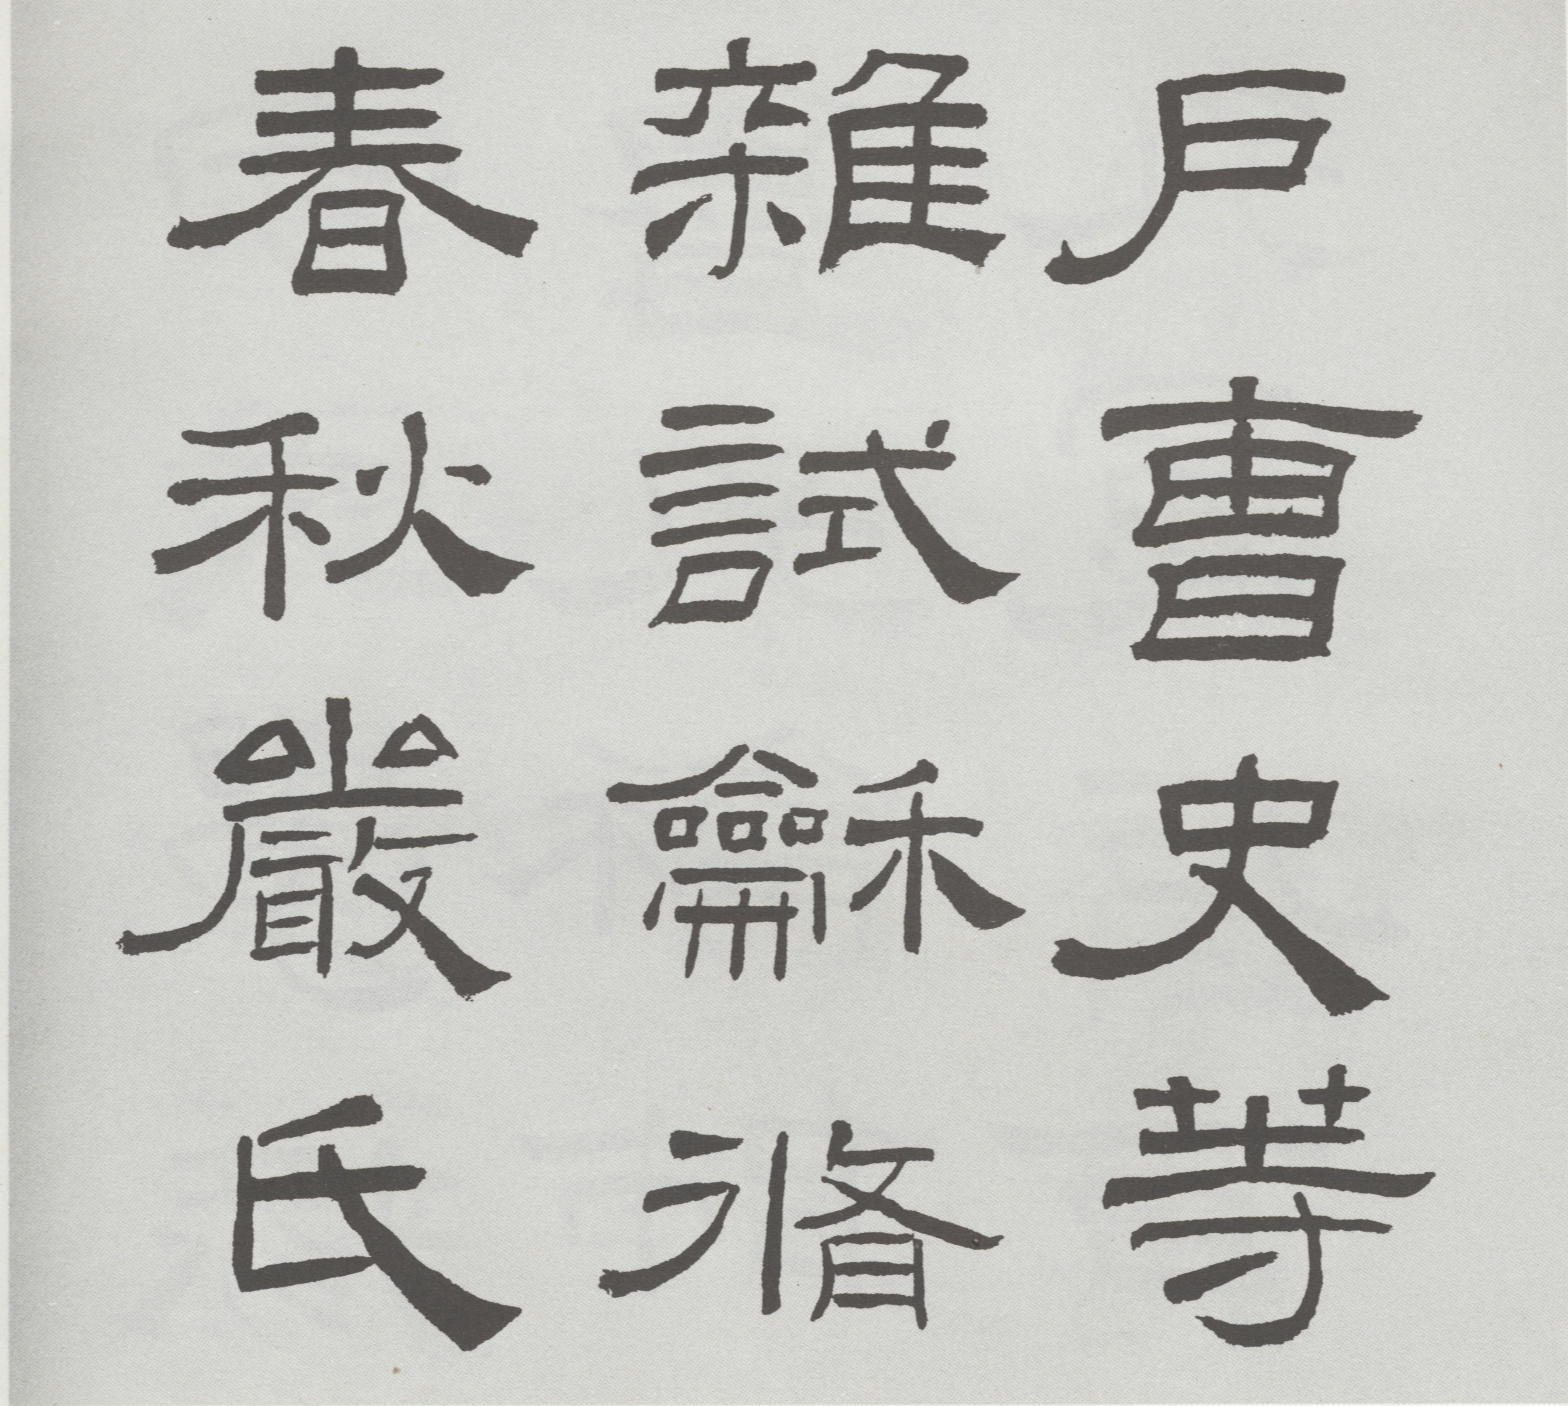 戶曹史等
雜試龢脩
春秋嚴氏